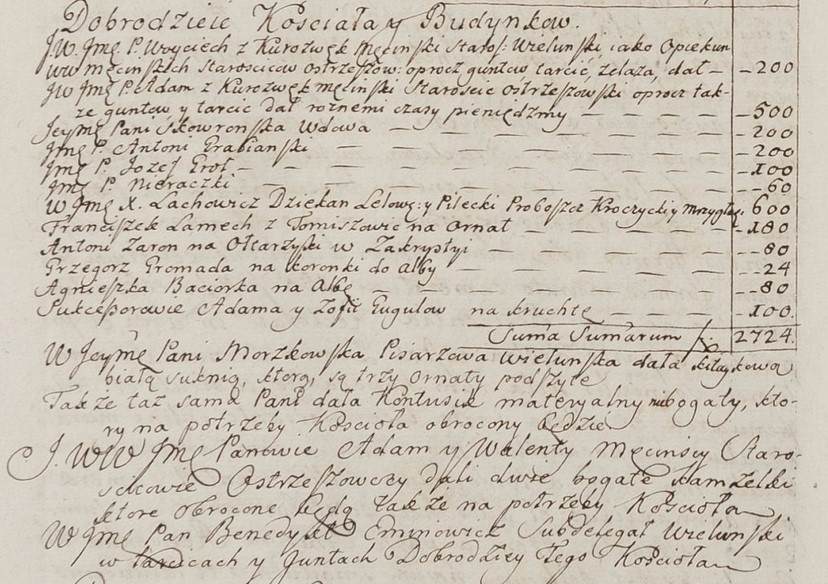 Dobrodzieie Kościała y Budynkow.
J.W. Jmę P. Woyciech z Kurozwęk Męcinski Staros: Wielunski, iako Opiekun
WW Męcinskich Starosciców Ostrzeszow: oprocz guntow tarcic, żelaza, dał – – 200
JW Jmę P. Adam z Kurozwęk Męcinski Staroscic Ostrzeszowski oprocz tak-
że guntow y tarcic dał roznemi czasy pieniędzmy – – – – 500
Jeymę Pani Skowronska Wdowa – – – – – – – – 200
Jmę P. Antoni Grabianski – – – – – – – – 200
Jmę P. Jozef Grot – – – – – – – – – – 100
Jmę P. Nieraczki – – – – – – – – – – 60
W Jmę X. Lachowicz Dziekan Lelow: y Pilecki Proboszcz Kroczycki y Mrzygłog. 600
Franciszek Lamech z Tomiszowic na Ornat – – – – – – 180
Antoni Zaron na Ołtarzyki w Zakrystyi – – – – – – 80
Grzegorz Gromada na koronki do Alby – – – – – – 24
Agnieszka Baciorka na Albę – – – – – – – – 80
Sukcessorowie Adama y Zofii Gugulow na kruchtę – – – – 100.
Suma Sumarum f. 2724.
W Jeymę Pani Morzkowska Pisarzowa Wielunska dała kitaykową
białą suknią, ktorą, są trzy Ornaty podszyte
Także taż sama Pani dała Kontusik materyalny niebogaty, kto-
ry na potrzeby Kościoła obrocony będzie
J. WW Jmę Panowie Adam y Walenty Męcinscy Staro-
scicowie Ostrzeszowscy dali dwie bogate kamzelki
ktore obrocone będą także na potrzeby Kościoła
W Jmę Pan Benedykt Eminowicz Subdelegat Wielunski
w tarcicach y Guntach Dobrodziey tego Kościoła